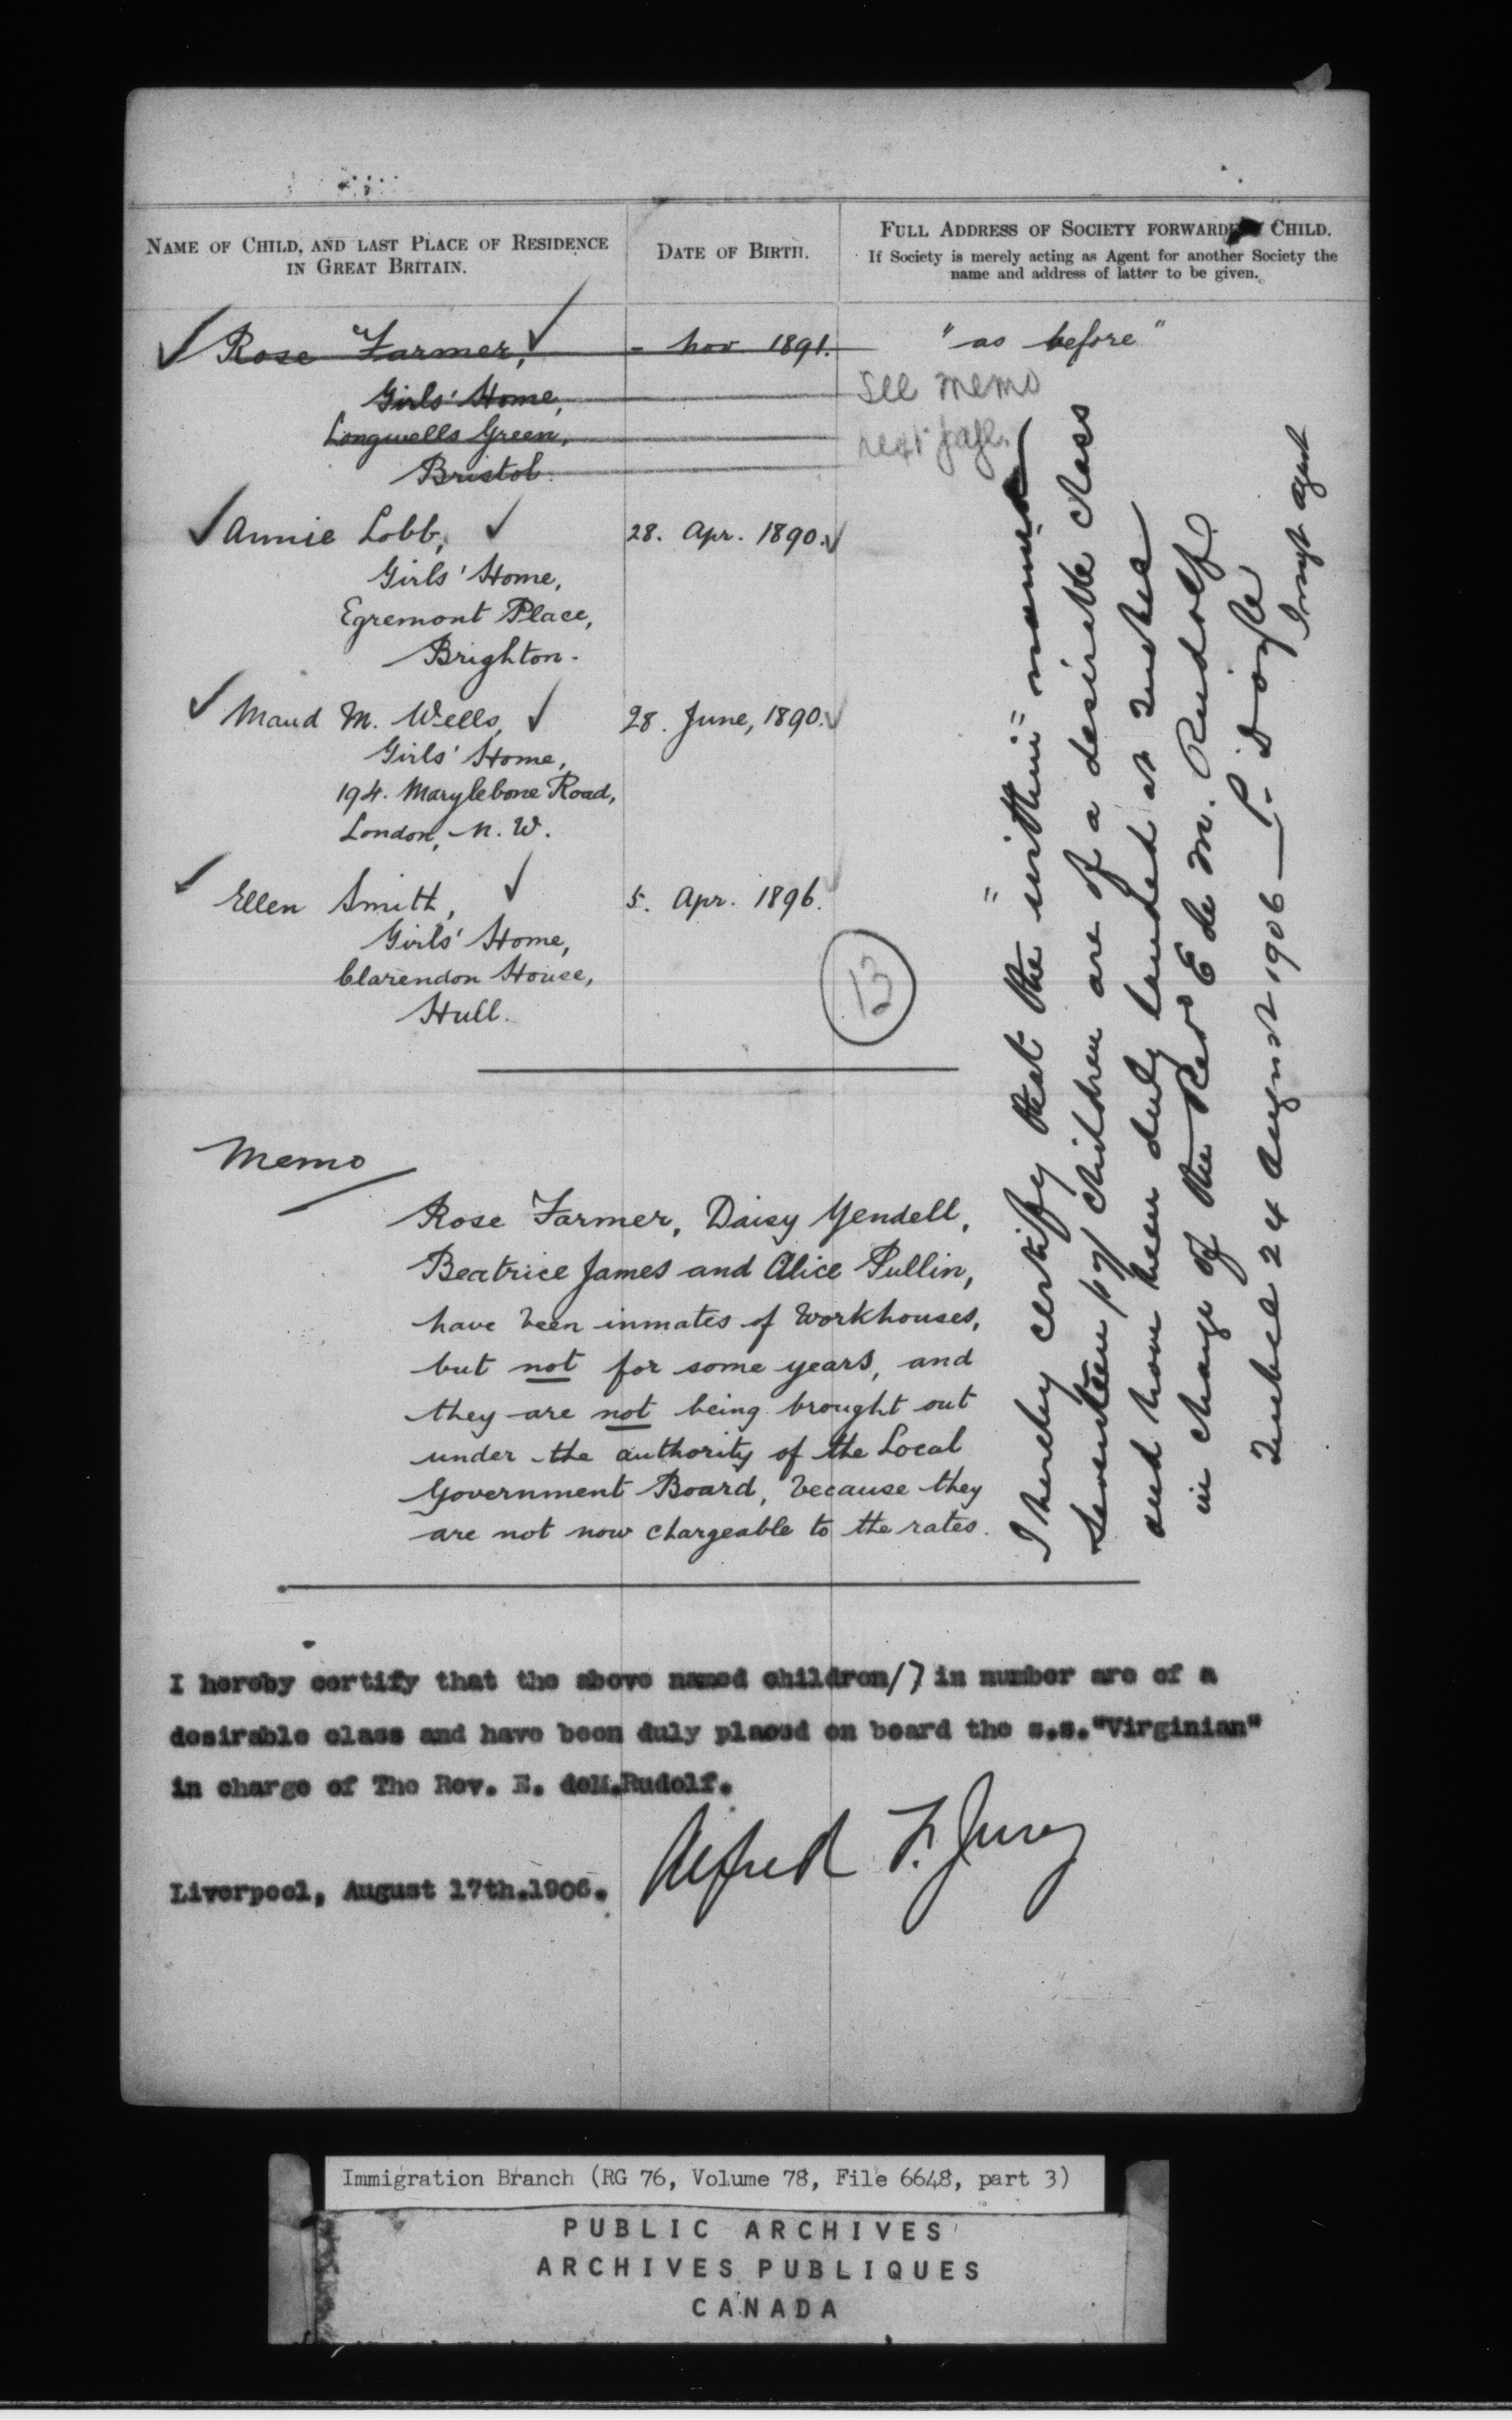 NAME OF CHILD, AND LAST PLACE OF RESIDENCE
IN GREAT BRITAIN.
DATE OF BIRTH.
FULL ADDRESS OF SOCIETY FORWARDING CHILD.
If Society is merely acting as Agent for another Society the
name and address of latter to be given.
Rose Farmer, - Nov 1891. "as before"
Girls' Home, see memo
Longwells Green, next page.
Bristol.
Annie Lobb, 28. Apr. 1890.
Girls' Home,
Egremont Place,
Brighton.
Maud M. Wells, 28. June, 1890.
Girls' Home,
194. Marylebone Road,
London, N. W.
Ellen Smith, 5. Apr. 1896.
Girls' Home,
Clarendon House,
Hull.
13
Memo
Rose Farmer, Daisy Yendell,
Beatrice James and Alice Pullin,
have been inmates of Workhouses,
but not for some years, and
they are not being brought out
under the authority of the Local
Government Board, because they
are not now chargeable to the rates.
I hereby certify that the "within" named
Seventeen 17 children are of a desirable class
and have been duly landed at Quebec
in charge of the Revd E de M. Rudolf.
Quebec 24 August 1906 — P. Doyle
Immgt agent
I hereby certify that the above named children 17 in number are of a
desirable class and have been duly placed on board the s.s."Virginian"
in charge of The Rev. E. deM.Rudolf.
Alfred F. Jury
Liverpool, August 17th.1906.
Immigration Branch (RG 76, Volume 78, File 6648, part 3)
PUBLIC ARCHIVES
ARCHIVES PUBLIQUES
CANADA